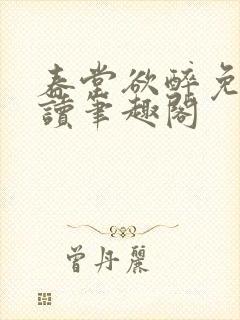 春棠欲醉免
讀筆趣閣
曾丹麗